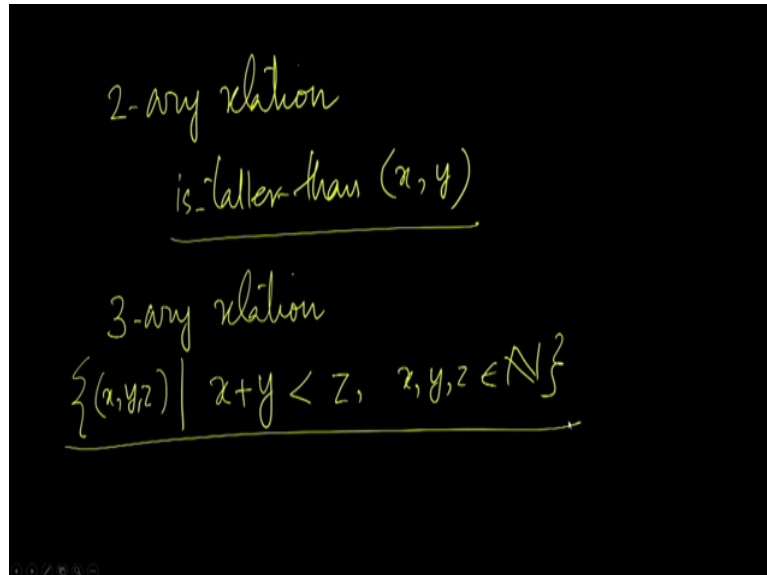 2-ary relation
is-taller-than (x, y)
3-ary relation
{(x,y,z) | x+y < z, x,y,z ∈ ℕ}